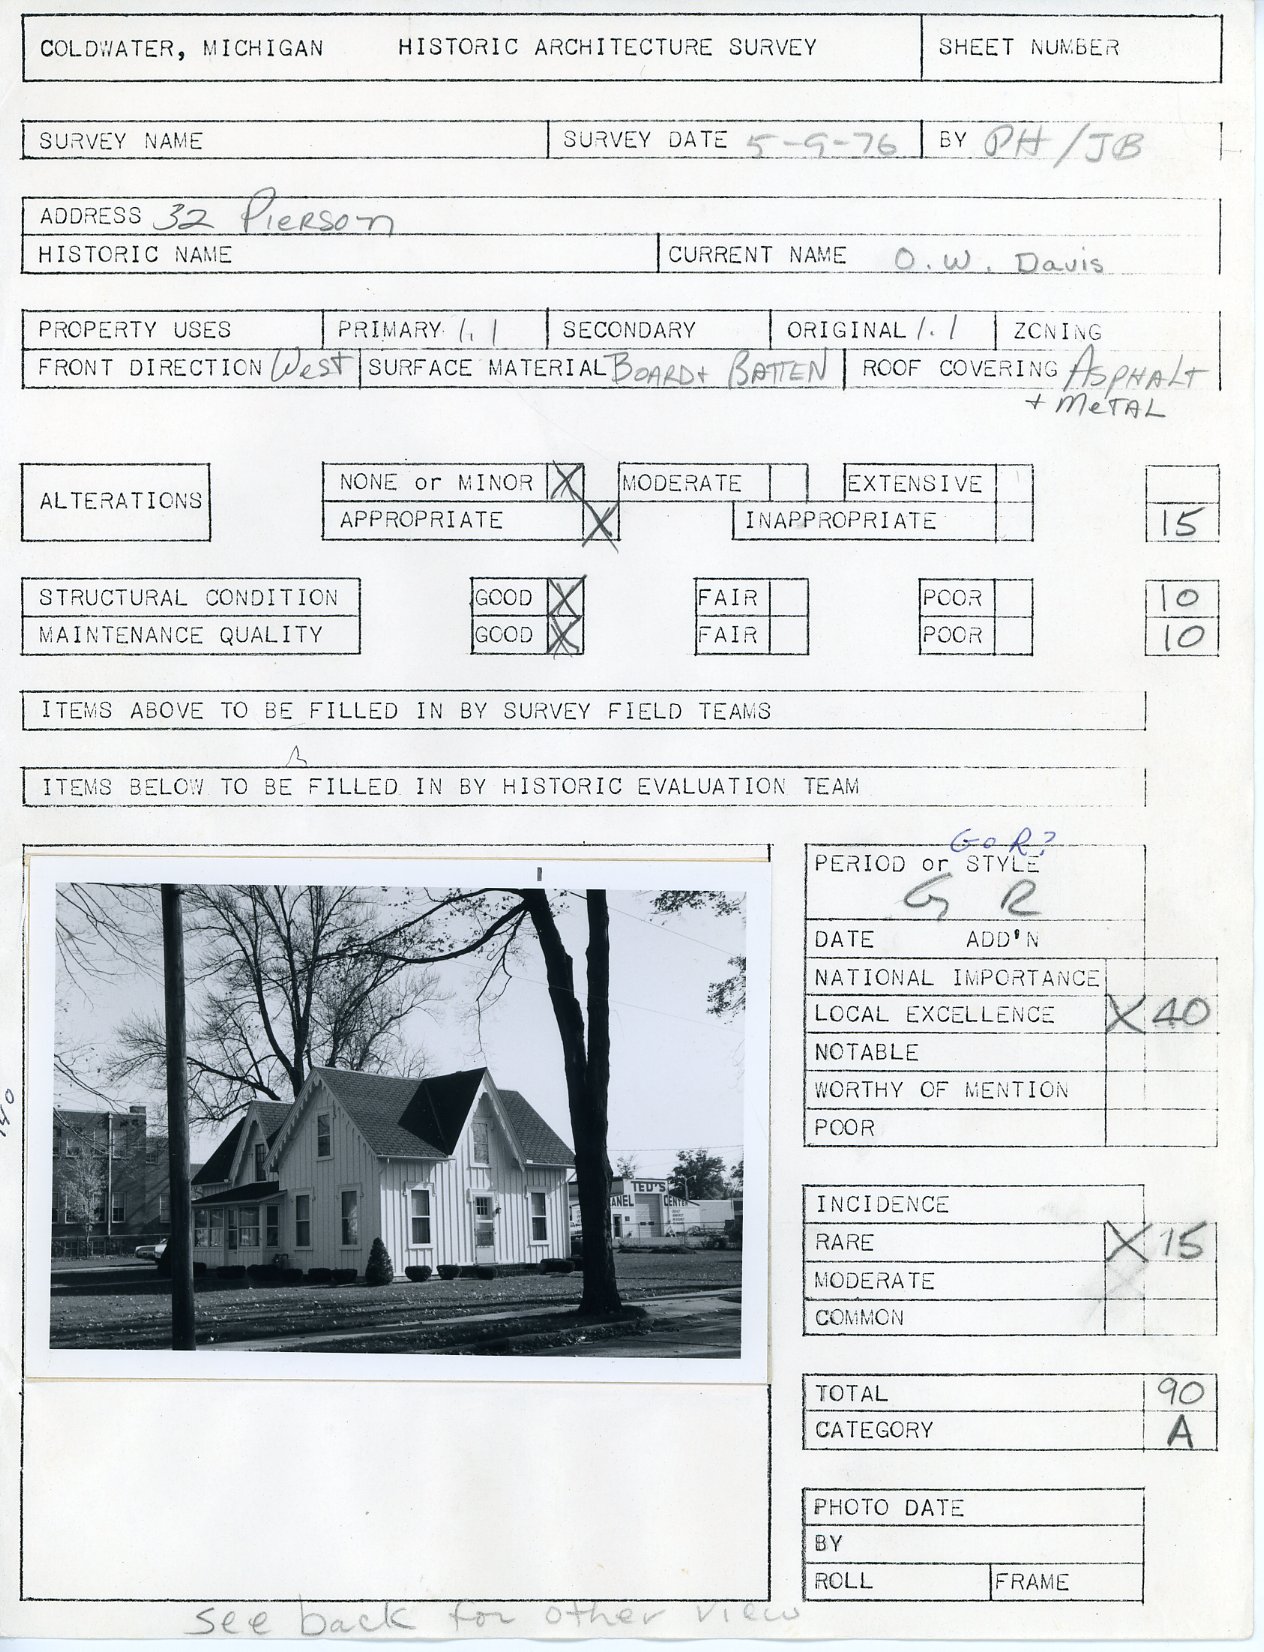 COLDWATER, MICHIGAN HISTORIC ARCHITECTURE SURVEY SHEET NUMBER
SURVEY NAME SURVEY DATE 5-9-76 BY PH/JB
ADDRESS 32 Pierson
HISTORIC NAME CURRENT NAME O.W. Davis
PROPERTY USES PRIMARY 1.1 SECONDARY ORIGINAL 1.1 ZONING
FRONT DIRECTION West SURFACE MATERIAL BOARD + BATTEN ROOF COVERING ASPHALT
+ METAL
ALTERATIONS NONE or MINOR X MODERATE EXTENSIVE
APPROPRIATE X INAPPROPRIATE 15
STRUCTURAL CONDITION GOOD X FAIR POOR 10
MAINTENANCE QUALITY GOOD X FAIR POOR 10
ITEMS ABOVE TO BE FILLED IN BY SURVEY FIELD TEAMS
ITEMS BELOW TO BE FILLED IN BY HISTORIC EVALUATION TEAM
G o R?
PERIOD or STYLE
G R
DATE ADD'N
NATIONAL IMPORTANCE
LOCAL EXCELLENCE X 40
NOTABLE
WORTHY OF MENTION
POOR
INCIDENCE
RARE X 15
MODERATE
COMMON
TOTAL 90
CATEGORY A
PHOTO DATE
BY
ROLL FRAME
TED'S
PANEL CENTER
See back for other view